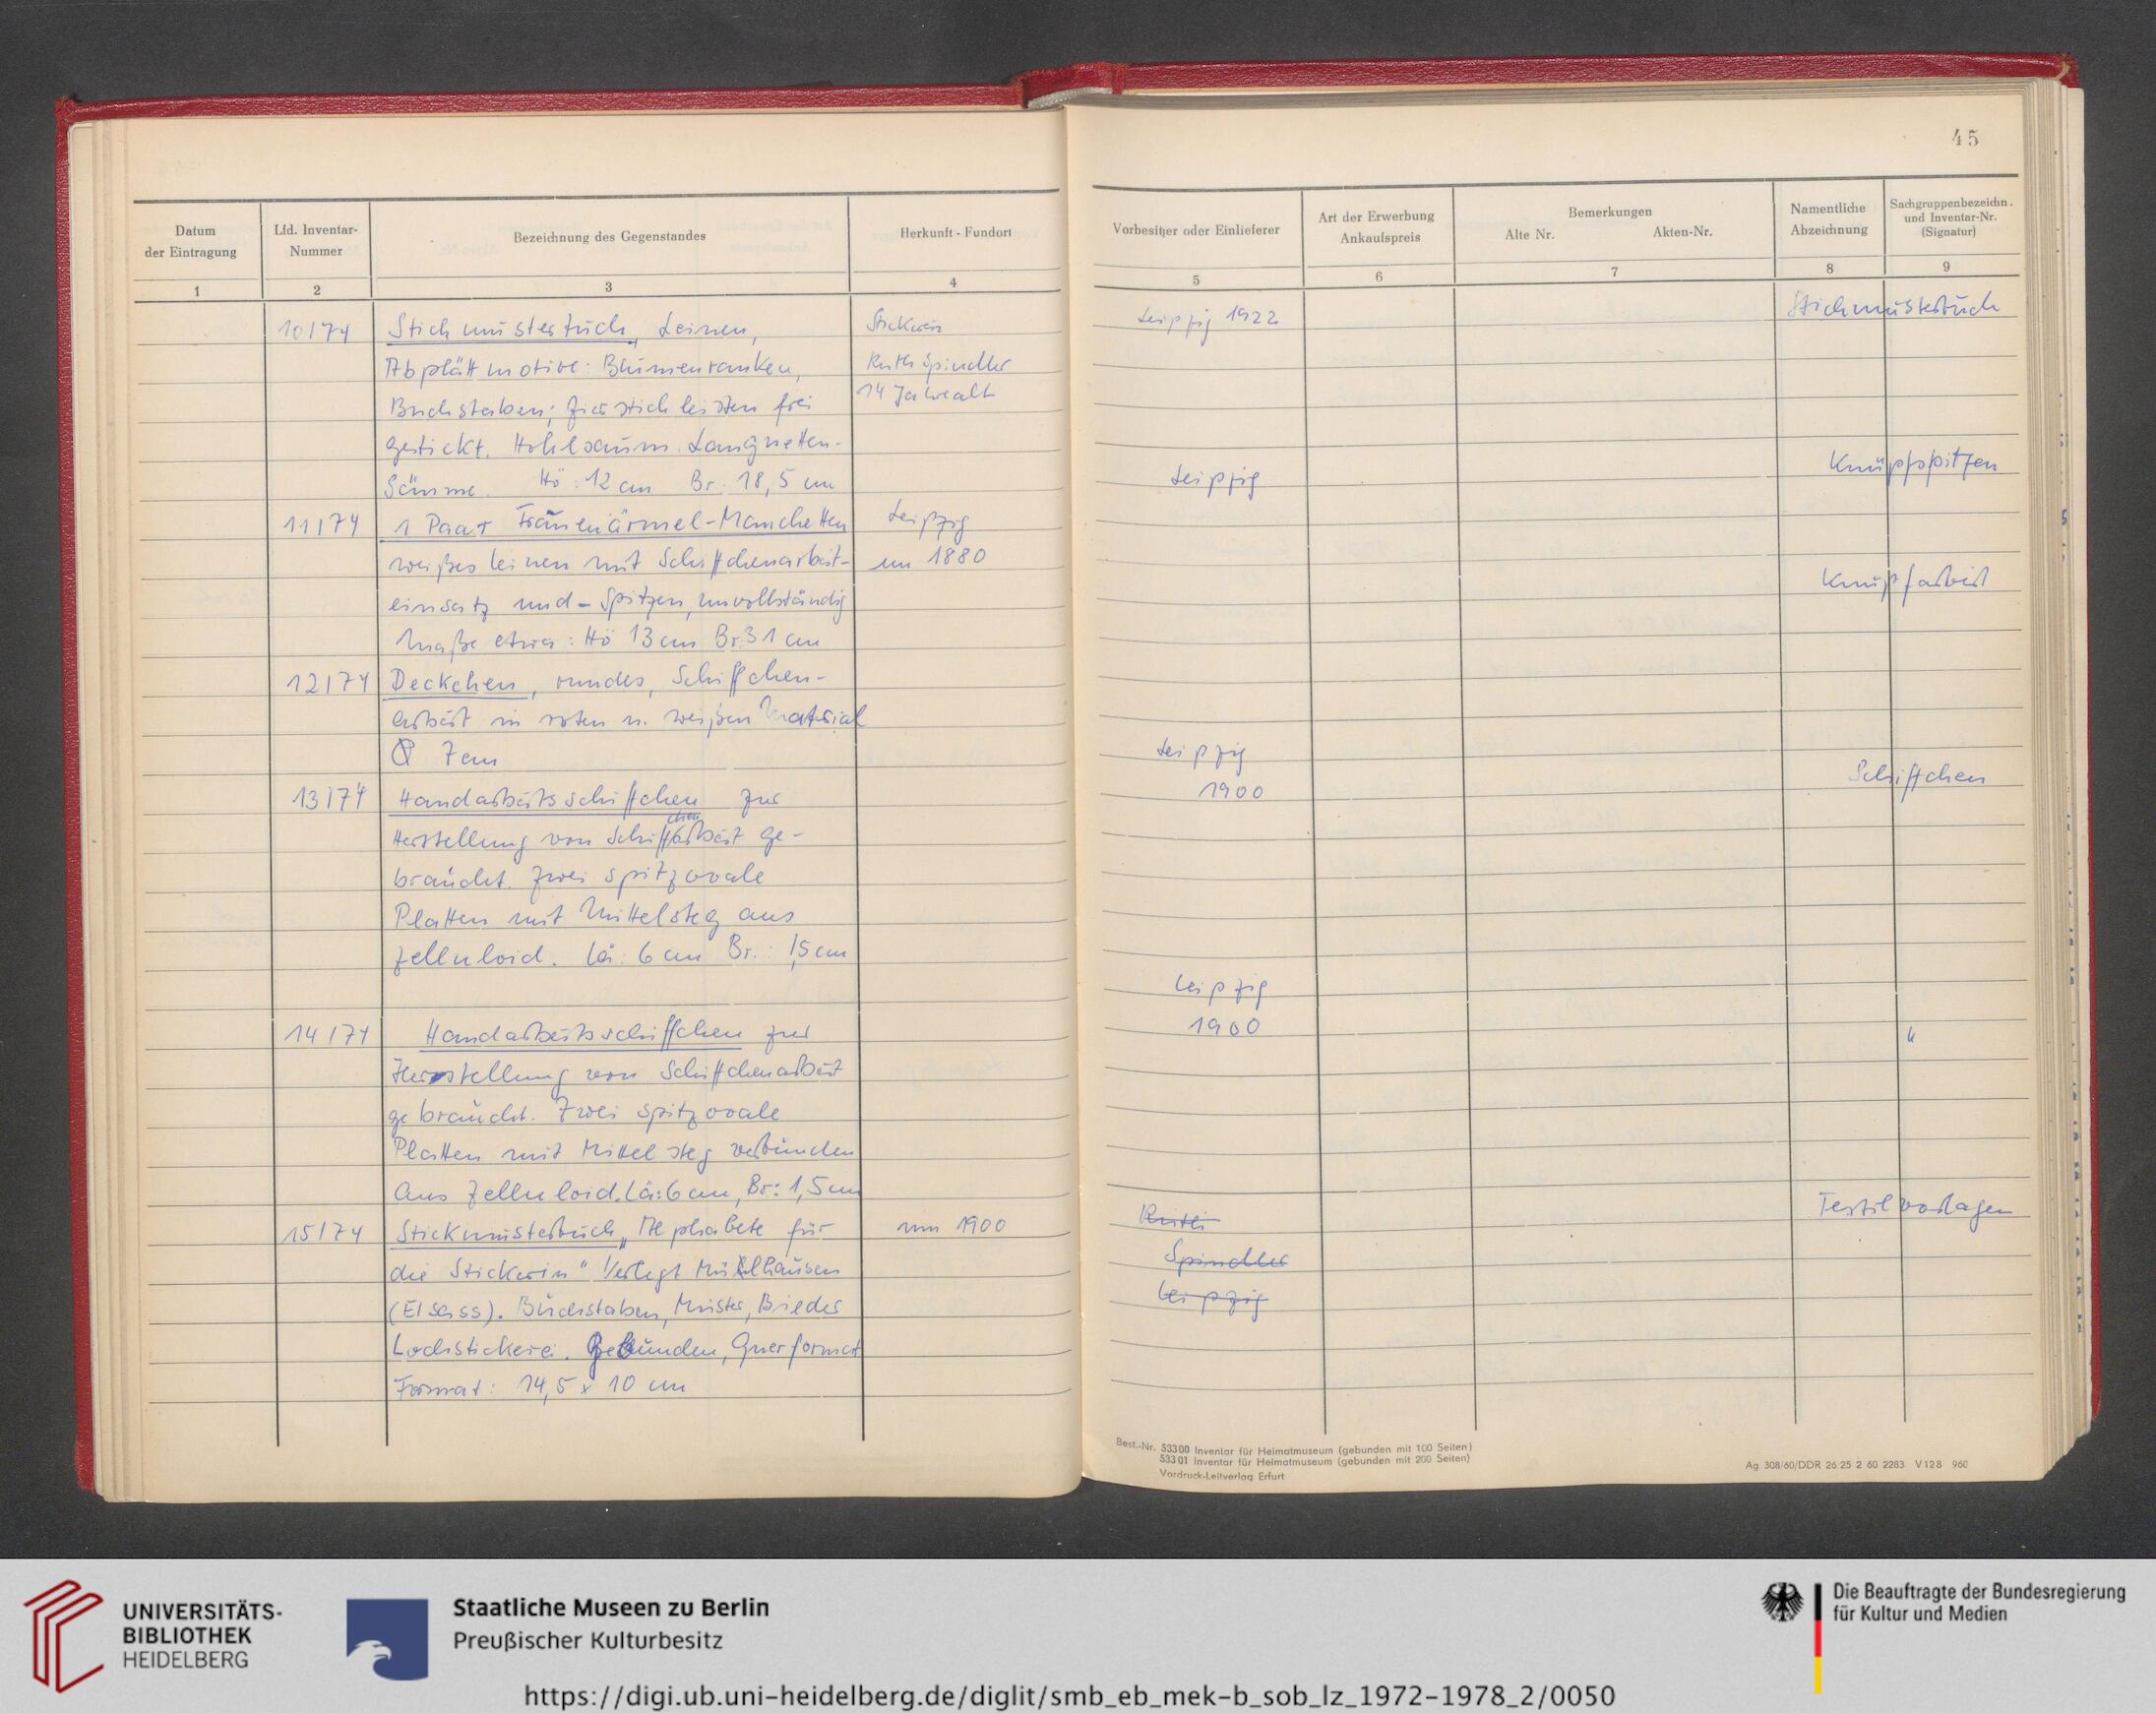 45
Datum
der Eintragung
Lfd. Inventar-
Nummer
Bezeichnung des Gegenstandes
Herkunft - Fundort
1
2
3
4
Vorbesitzer oder Einlieferer
Art der Erwerbung
Ankaufspreis
Bemerkungen
Alte Nr. Akten-Nr.
Namentliche
Abzeichnung
Sachgruppenbezeichn.
und Inventar-Nr.
(Signatur)
5
6
7
8
9
10/74 Stichmustertuch, Leinen, Stickerin
Abplättmotive: Blumenranken, Ruth Spindler
Buchstaben; Zierstichleisten frei 14 Jahre alt
gestickt. Hohlsaum. Langnetten-
Säume. Hö: 12 cm Br. 18,5 cm
11/74 1 Paar Frauenärmel-Manchetten Leipzig
weißes Leinen mit Schiffchenarbeit- um 1880
einsatz und - Spitzen, unvollständig
Maße etwa: Hö 13 cm Br. 31 cm
12/74 Deckchen, rundes, Schiffchen-
arbeit in roten u. weißen Material
Ø 7 cm
13/74 Handarbeitsschiffchen zur
Herstellung von Schiffchenarbeit ge-
braucht. Zwei spitzovale
Platten mit Mittelsteg aus
Zelluloid. Lä: 6 cm Br.: 1,5 cm
14/74 Handarbeitsschiffchen zur
Herstellung von Schiffchenarbeit
gebraucht. Zwei spitzovale
Platten mit Mittelsteg verbunden
aus Zelluloid. Lä: 6 cm, Br: 1,5 cm
15/74 Stickmusterbuch „Alphabete für um 1900
die Stickerin" Verlegt Mühlhausen
(Elsass). Buchstaben, Muster, Bilder
Lochstickerei. Gebunden, Querformat
Format: 14,5 x 10 cm
Leipzig 1922 Stichmustertuch
Leipzig Knüpfspitzen
Knüpfarbeit
Leipzig
1900 Schiffchen
Leipzig
1900 "
Ruth Textilvorlagen
Spindler
Leipzig
Best.-Nr. 53300 Inventar für Heimatmuseum (gebunden mit 100 Seiten)
53301 Inventar für Heimatmuseum (gebunden mit 200 Seiten)
Vordruck-Leitverlag Erfurt
Ag 308/60/DDR 26 25 2 60 2283 V 12 8 960
UNIVERSITÄTS-
BIBLIOTHEK
HEIDELBERG
Staatliche Museen zu Berlin
Preußischer Kulturbesitz
Die Beauftragte der Bundesregierung
für Kultur und Medien
https://digi.ub.uni-heidelberg.de/diglit/smb_eb_mek-b_sob_lz_1972-1978_2/0050